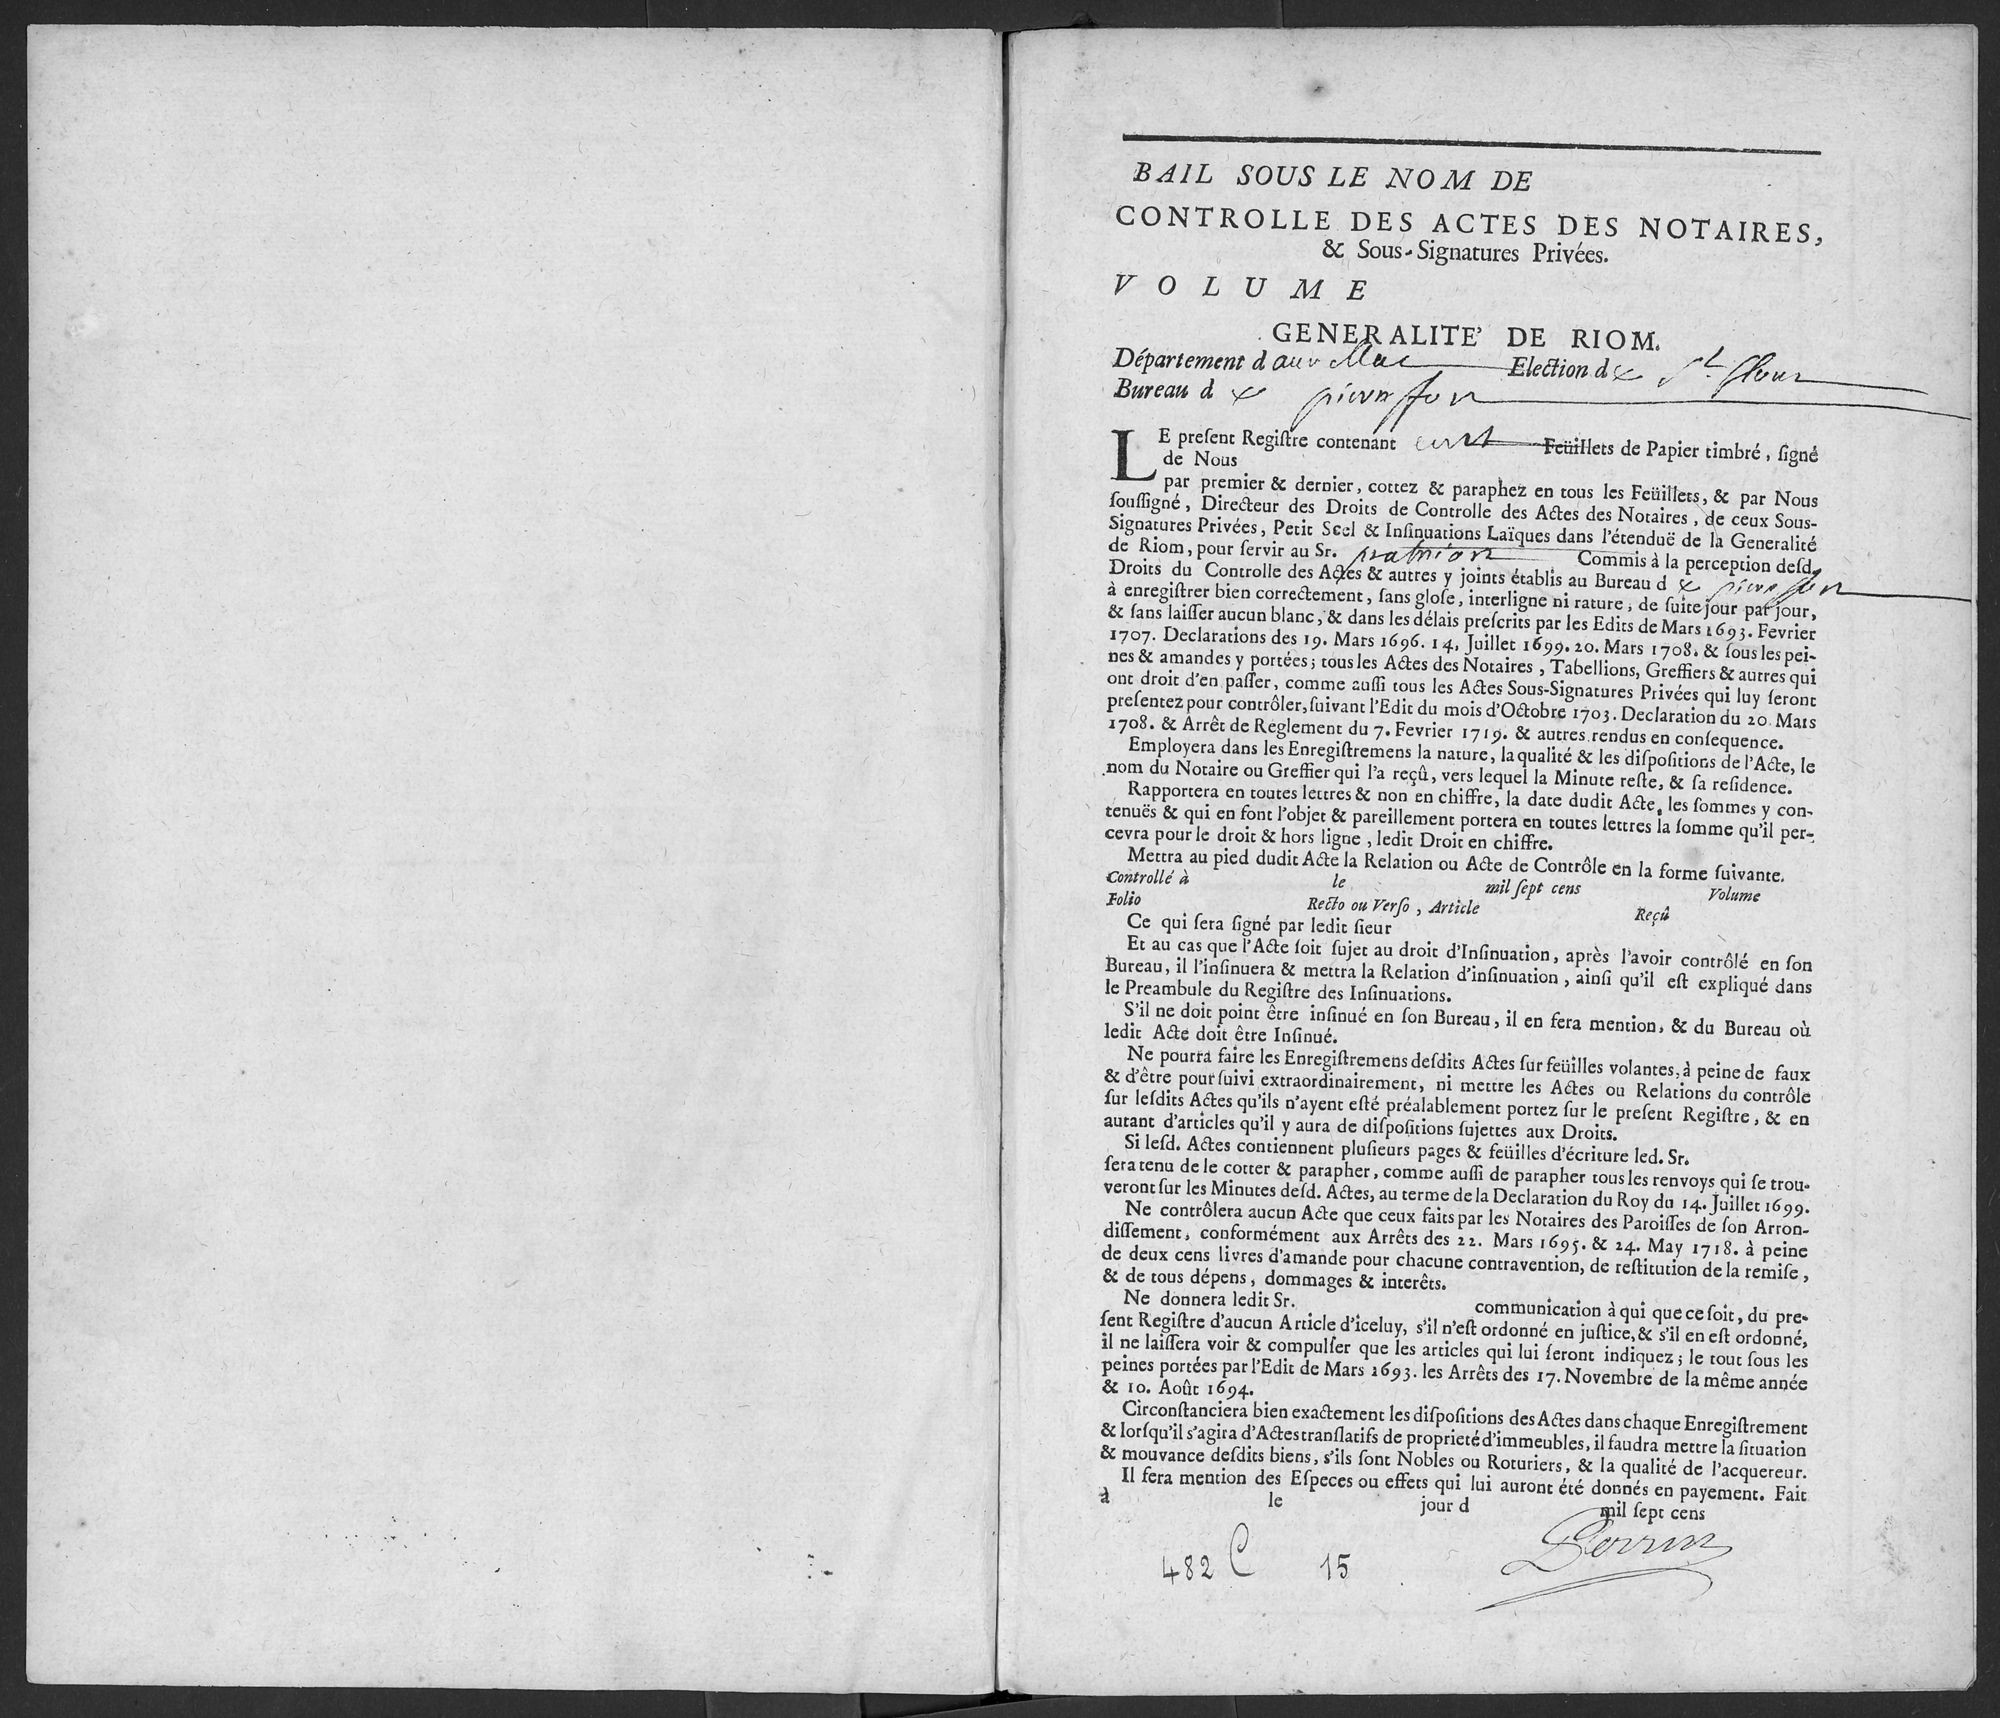 BAIL SOUS LE NOM DE
CONTROLLE DES ACTES DES NOTAIRES,
& Sous-Signatures Privées.
VOLUME
GENERALITE' DE RIOM.
Département d aurillac Election d e St flour
Bureau d e pierrefort
LE preſent Regiſtre contenant cent Feüillets de Papier timbré, ſigné
de Nous
par premier & dernier, cottez & paraphez en tous les Feüillets, & par Nous
ſouſſigné, Directeur des Droits de Controlle des Actes des Notaires, de ceux Sous-
Signatures Privées, Petit Scel & Inſinuations Laïques dans l'étenduë de la Generalité
de Riom, pour ſervir au Sr. Commis à la perception deſd.
Droits du Controlle des Actes & autres y joints établis au Bureau d e pierrefort
à enregiſtrer bien correctement, ſans gloſe, interligne ni rature, de ſuite jour par jour,
& ſans laiſſer aucun blanc, & dans les délais preſcrits par les Edits de Mars 1693. Fevrier
1707. Declarations des 19. Mars 1696. 14. Juillet 1699. 20. Mars 1708. & ſous les pei-
nes & amandes y portées; tous les Actes des Notaires, Tabellions, Greffiers & autres qui
ont droit d'en paſſer, comme auſſi tous les Actes Sous-Signatures Privées qui luy ſeront
preſentez pour contrôler, ſuivant l'Edit du mois d'Octobre 1703. Declaration du 20 Mars
1708. & Arrêt de Reglement du 7. Fevrier 1719. & autres rendus en conſequence.
Employera dans les Enregiſtremens la nature, la qualité & les diſpoſitions de l'Acte, le
nom du Notaire ou Greffier qui l'a reçû, vers lequel la Minute reſte, & ſa reſidence.
Rapportera en toutes lettres & non en chiffre, la date dudit Acte, les ſommes y con-
tenuës & qui en font l'objet & pareillement portera en toutes lettres la ſomme qu'il per-
cevra pour le droit & hors ligne, ledit Droit en chiffre.
Mettra au pied dudit Acte la Relation ou Acte de Contrôle en la forme ſuivante.
Controllé à le mil ſept cens Volume
Folio Recto ou Verſo, Article Reçû
Ce qui ſera ſigné par ledit ſieur
Et au cas que l'Acte ſoit ſujet au droit d'Inſinuation, après l'avoir contrôlé en ſon
Bureau, il l'inſinuera & mettra la Relation d'inſinuation, ainſi qu'il eſt expliqué dans
le Preambule du Regiſtre des Inſinuations.
S'il ne doit point être inſinué en ſon Bureau, il en fera mention, & du Bureau où
ledit Acte doit être Inſinué.
Ne pourra faire les Enregiſtremens deſdits Actes ſur feüilles volantes, à peine de faux
& d'être pourſuivi extraordinairement, ni mettre les Actes ou Relations du contrôle
ſur leſdits Actes qu'ils n'ayent eſté préalablement portez ſur le preſent Regiſtre, & en
autant d'articles qu'il y aura de diſpoſitions ſujettes aux Droits.
Si leſd. Actes contiennent pluſieurs pages & feüilles d'écriture led. Sr.
ſera tenu de le cotter & parapher, comme auſſi de parapher tous les renvoys qui ſe trou-
veront ſur les Minutes deſd. Actes, au terme de la Declaration du Roy du 14. Juillet 1699.
Ne contrôlera aucun Acte que ceux faits par les Notaires des Paroiſſes de ſon Arron-
diſſement, conformément aux Arrêts des 22. Mars 1695. & 24. May 1718. à peine
de deux cens livres d'amande pour chacune contravention, de reſtitution de la remiſe,
& de tous dépens, dommages & interêts.
Ne donnera ledit Sr. communication à qui que ce ſoit, du pre-
ſent Regiſtre d'aucun Article d'iceluy, s'il n'eſt ordonné en juſtice, & s'il en eſt ordonné,
il ne laiſſera voir & compulſer que les articles qui lui ſeront indiquez; le tout ſous les
peines portées par l'Edit de Mars 1693. les Arrêts des 17. Novembre de la même année
& 10. Août 1694.
Circonſtanciera bien exactement les diſpoſitions des Actes dans chaque Enregiſtrement
& lorſqu'il s'agira d'Actes tranſlatifs de proprieté d'immeubles, il faudra mettre la ſituation
& mouvance deſdits biens, s'ils ſont Nobles ou Roturiers, & la qualité de l'acquereur.
Il fera mention des Eſpeces ou effets qui lui auront été donnés en payement. Fait
à le jour d mil ſept cens
Perrin
482 C 15